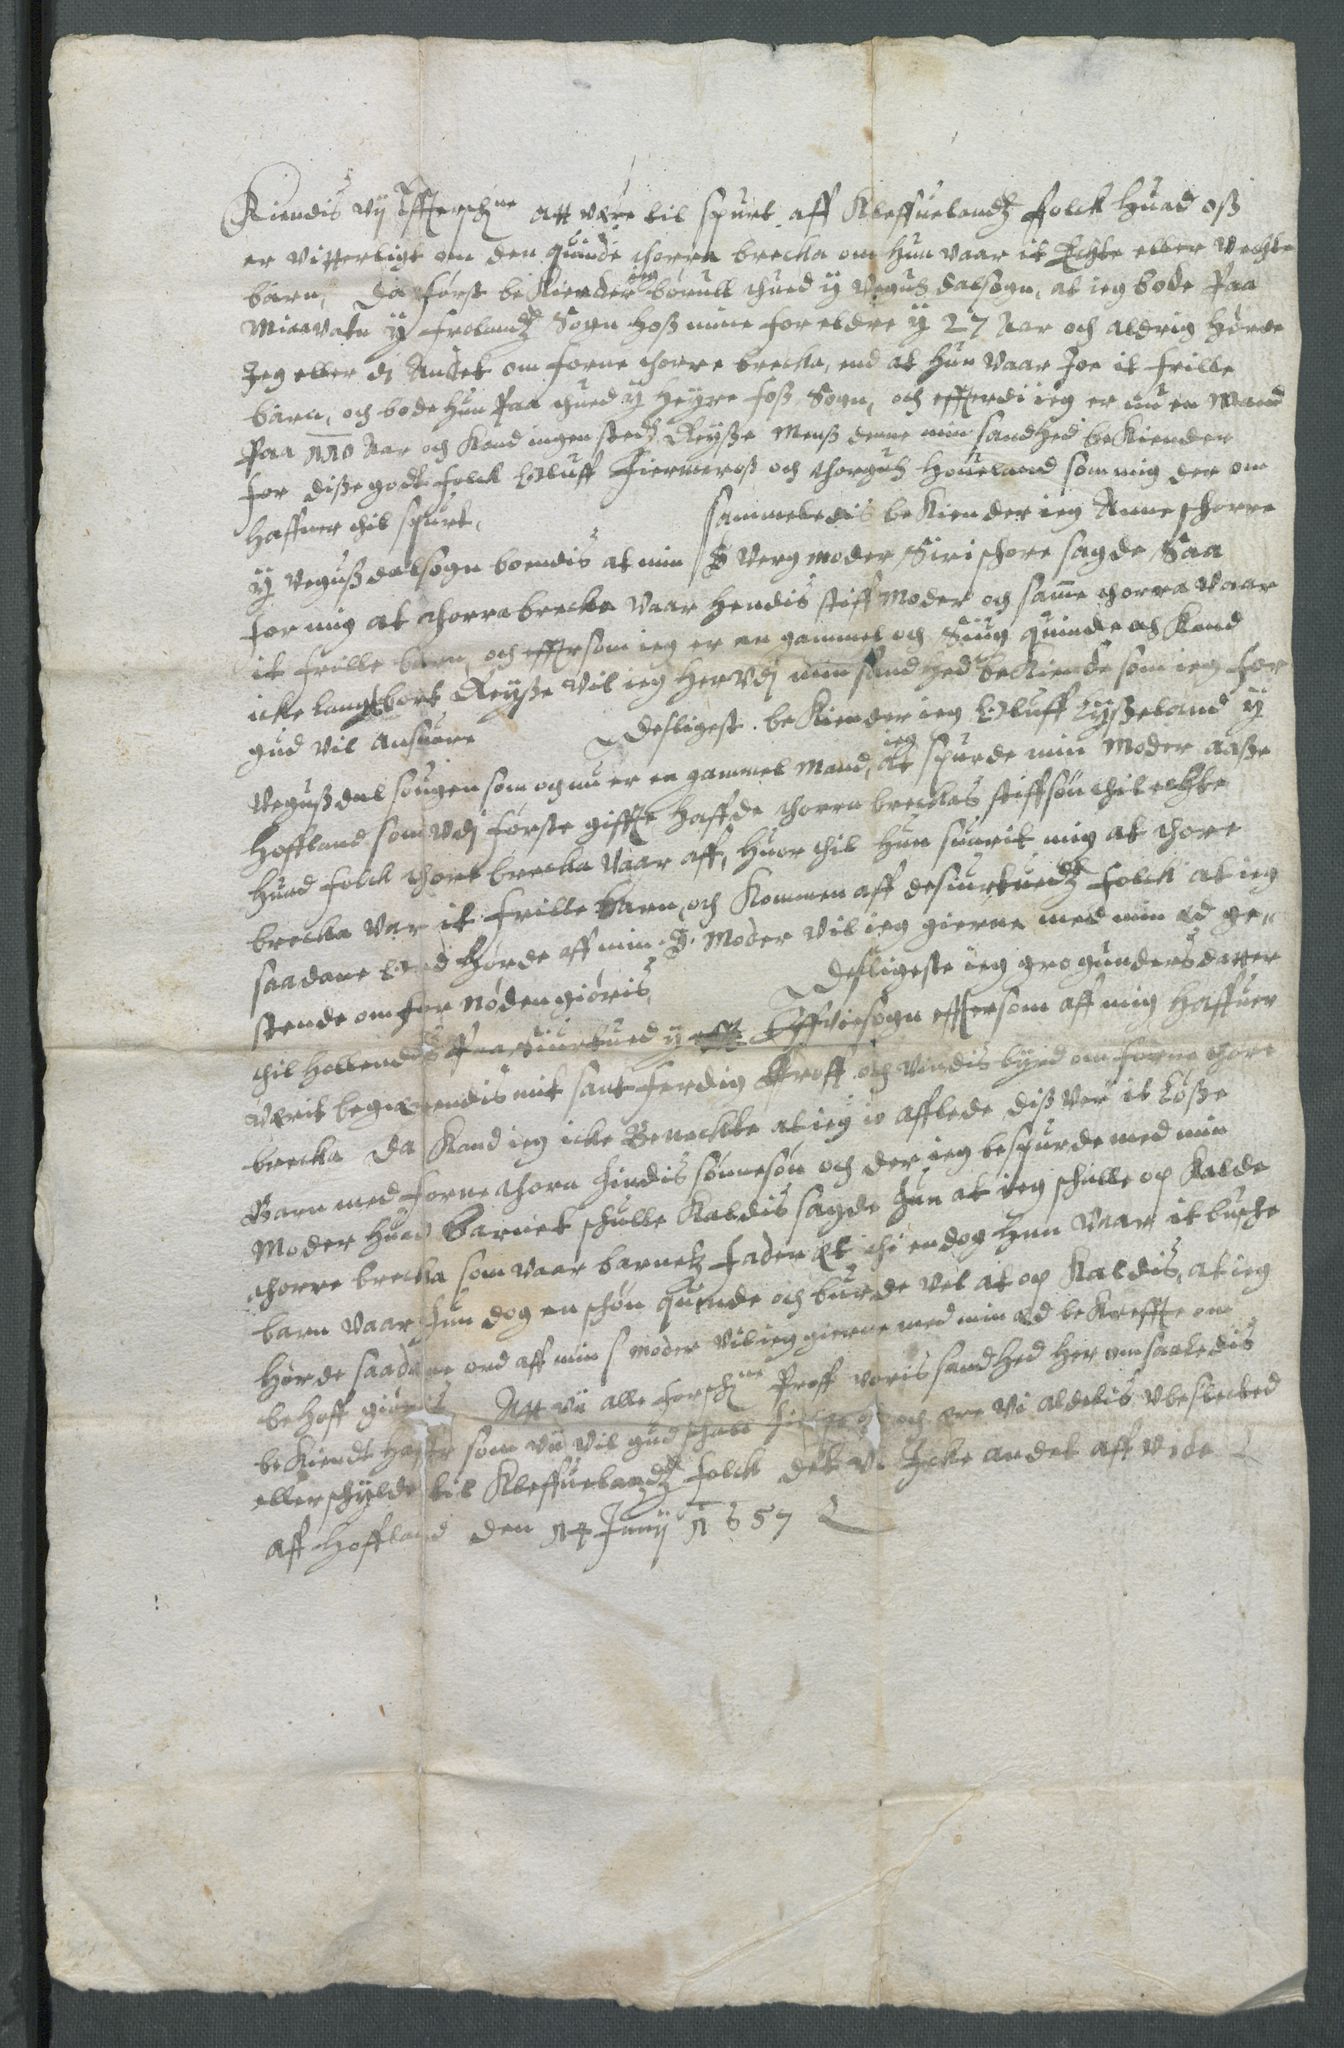 Kiendis vij Effterschne att vere til spurt aff Kleffuelandz folck huad oß
er vitterligt om den quinde thorra brecka om hun vaar it Echte eller vechte
barn, Da først bekiender ieg borull thued y Veguß dalsogn, at ieg bode paa
Miaavatn y frolandz Sogn hoß mine for eldre y 27 Aar och aldrig hørde
Jeg eller di Andet om forne thorre brecka, end at hun vaar Joe it frille
barn, och bode hun paa thued y heyre foß Sogn, och effterdi ieg er nu en mand
paa 110 Aar och kand ingen stedz Reyße Menß denne min sandhed bekiender
for diße godt folck Oluff Fiermeroß och thorguß houeland som mig der om
haffuer thil spurt, Sammeledis bekiender ieg Anne thorre
y Veguß dalsogn boendis at min S verg moder Siri thore sagde Saa
for mig at thorra brecka vaar hendis stiff moder och samme thorra vaar
it frille barn, och effter som ieg er en gammel och Siug quinde och kand
icke langt bort Reyße vil ieg her vdj min sandhed bekiende som ieg for
gud vil ansuare Desligest bekiender ieg Oluff Lyßeland y
Veguß dal sougen som och nu er en gammel mand, at ieg spurde min moder aaße
hoffland som vdj første gifft haffde thorra breckas stiffsøn thil echte
huad folck thore brecka vaar aff, huor thil hun suarit mig at thore
brecka var it frille barn, och kommen aff desiurtuedz folck at ieg
saadane Ord hørde aff min S. moder vil ieg gierne med min Ed ge¬
stende om for nøden giøris, Desligeste ieg gro gunders datter
thil hollendis paa Siurtued y Effiesogn efftersom aff mig haffuer
verit begierendis mit sant ferdig proff och vindis byrd om forne thore
brecka Da kand ieg icke Benechte at ieg io afflede diß ver it Løße
Barn med forne thora hindis sønnesøn och der ieg bespurde med min
Moder huad barnet schulle kaldis sagde hun at ieg schulle op kalde
thorre brecka som vaar barnetz fader et thi endog hun vaar it lusche
barn vaar hun dog en schøn quinde och burde vel at op kaldis, at ieg
hørde saadane ord aff min S moder vil ieg gierne med min Ed bekreffte om
behoff giøris Att vii alle forschne proff voris sandhed her om saaledis
bekiendt haffr som vii vil gud schall hielpe oß och ere vi aldelis vbeslected
eller schylde til Kleffuelandz folck det vi Icke andet aff vide
aff hoffland den 14 Junij 1657